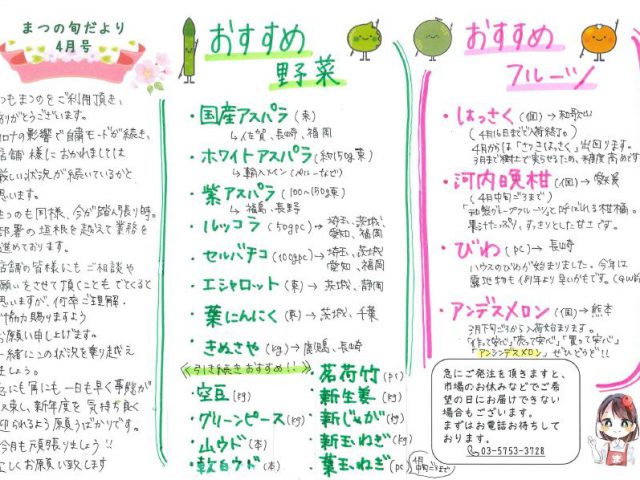 まつの旬だより
4月号
いつもまつのをご利用頂き、
ありがとうございます。
コロナの影響で自粛モードが続き、
店舗様におかれましては
厳しい状況が続いているかと
思います。
まつのも同様、今が踏ん張り時。
部署の垣根を越えて業務を
進めております。
店舗の皆様にもご相談や
お願いをさせて頂くこともでてくると
思いますが、何卒ご理解・
ご協力賜りますよう
お願い申し上げます。
一緒にこの状況を乗り越え
ましょう。
とにも角にも一日も早く事態が
収束し、新年度を気持ち良く
迎えられるよう願うばかりです。
今月も頑張りましょう!!
宜しくお願い致します
おすすめ
野菜
・国産アスパラ(束)
→佐賀、長崎、福岡
・ホワイトアスパラ(約150g束)
→輸入メイン(ペルーなど)
・紫アスパラ(100~150g束)
→福島、長野
・ルッコラ(50gpc)→埼玉、茨城、
愛知、福岡
・セルバチコ(100gpc)→埼玉、茨城、
愛知、福岡
・エシャロット(束)→茨城、静岡
・葉にんにく(束)→茨城、千葉
・きぬさや(kg)→鹿児島、長崎
<引き続きおすすめ!!>
・空豆(kg)
・グリーンピース(kg)
・山ウド(本)
・軟白ウド(本)
・茗荷竹(pc)
・新生姜(kg)
・新じゃが(kg)
・新玉ねぎ(kg)
・葉玉ねぎ(pc)
おすすめ
フルーツ
・はっさく(個)→和歌山
(4月16日まで入荷終了)
4月からは「さつきはっさく」出回ります。
3月まで樹上で実らせるため、糖度高めです
・河内晩柑(個)→愛媛
(4月中旬ごろまで)
「和製グレープフルーツ」と呼ばれる柑橘。
果汁たっぷり、すっきりとした甘さです。
・びわ(pc)→長崎
ハウスのびわが始まりました。今年は
露地ものも例年より良いがもです。
・アンデスメロン(個)→熊本
3月下旬ごろから入荷始まります。
「作って安心」「売って安心」「買って安心」
「アンシンデスメロン」ぜひどうぞ!!
急にご発注を頂きますと、
市場のお休みなどでご希
望の日にお届けできない
場合もございます。
まずはお電話お待ちして
おります。
03-5753-3728